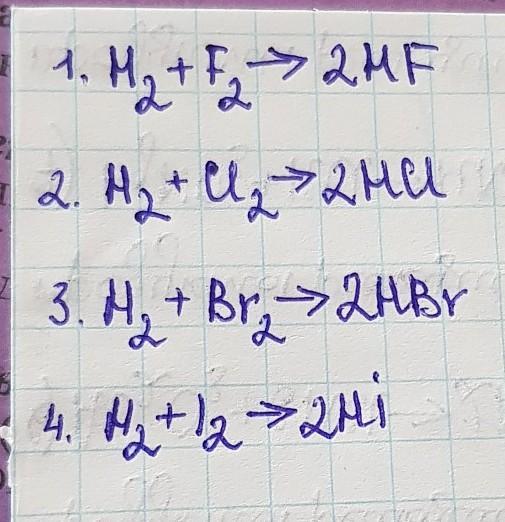 1. H₂ + F₂ → 2HF
2. H₂ + Cl₂ → 2HCl
3. H₂ + Br₂ → 2HBr
4. H₂ + I₂ → 2Hi